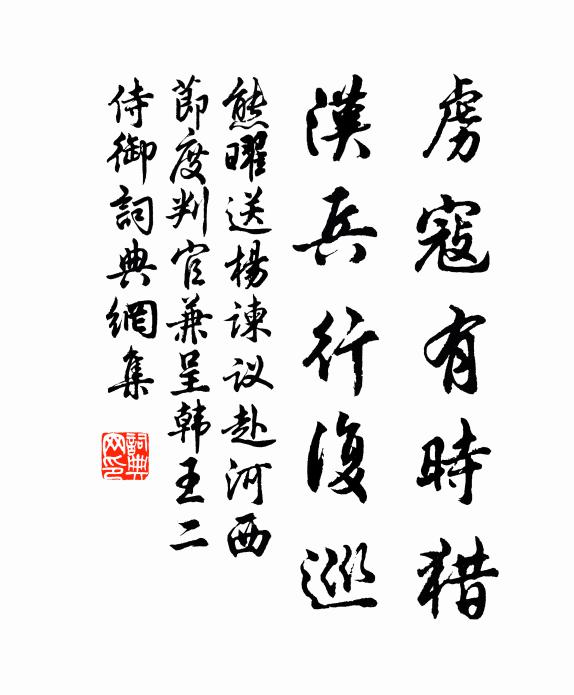 虜寇有時猎
漢兵行復巡
熊曜送楊諫议赴河西
節度判官兼呈韩王二
侍御詞典網集
詞典
网印